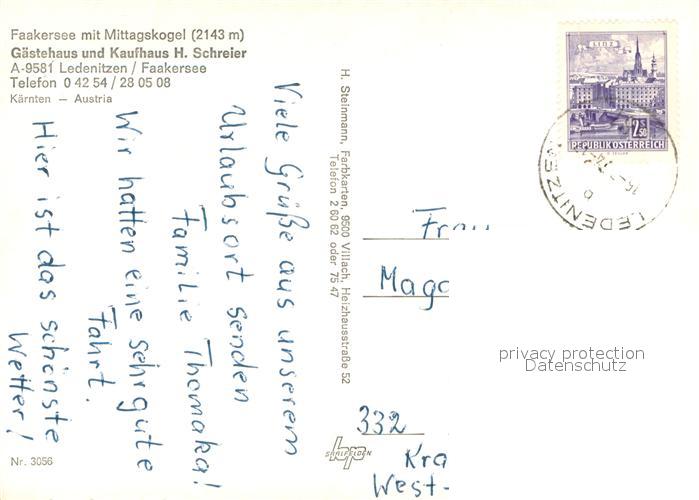 Faakersee mit Mittagskogel (2143 m)
Gästehaus und Kaufhaus H. Schreier
A-9581 Ledenitzen / Faakersee
Telefon 0 42 54 / 28 05 08
Kärnten — Austria
Viele Grüße aus unserem
Urlaubsort senden
Familie Thomaka!
Wir hatten eine sehr gute
Fahrt.
Hier ist das schönste
Wetter!
Nr. 3056
H. Steinmann, Farbkarten, 9500 Villach, Heizhausstraße 52
Telefon 2 60 62 oder 75 47
SAALFELDEN
LINZ
2.50
REPUBLIK ÖSTERREICH
LEDENITZEN
Frau
Mago
332
Kra
West-
privacy protection
Datenschutz